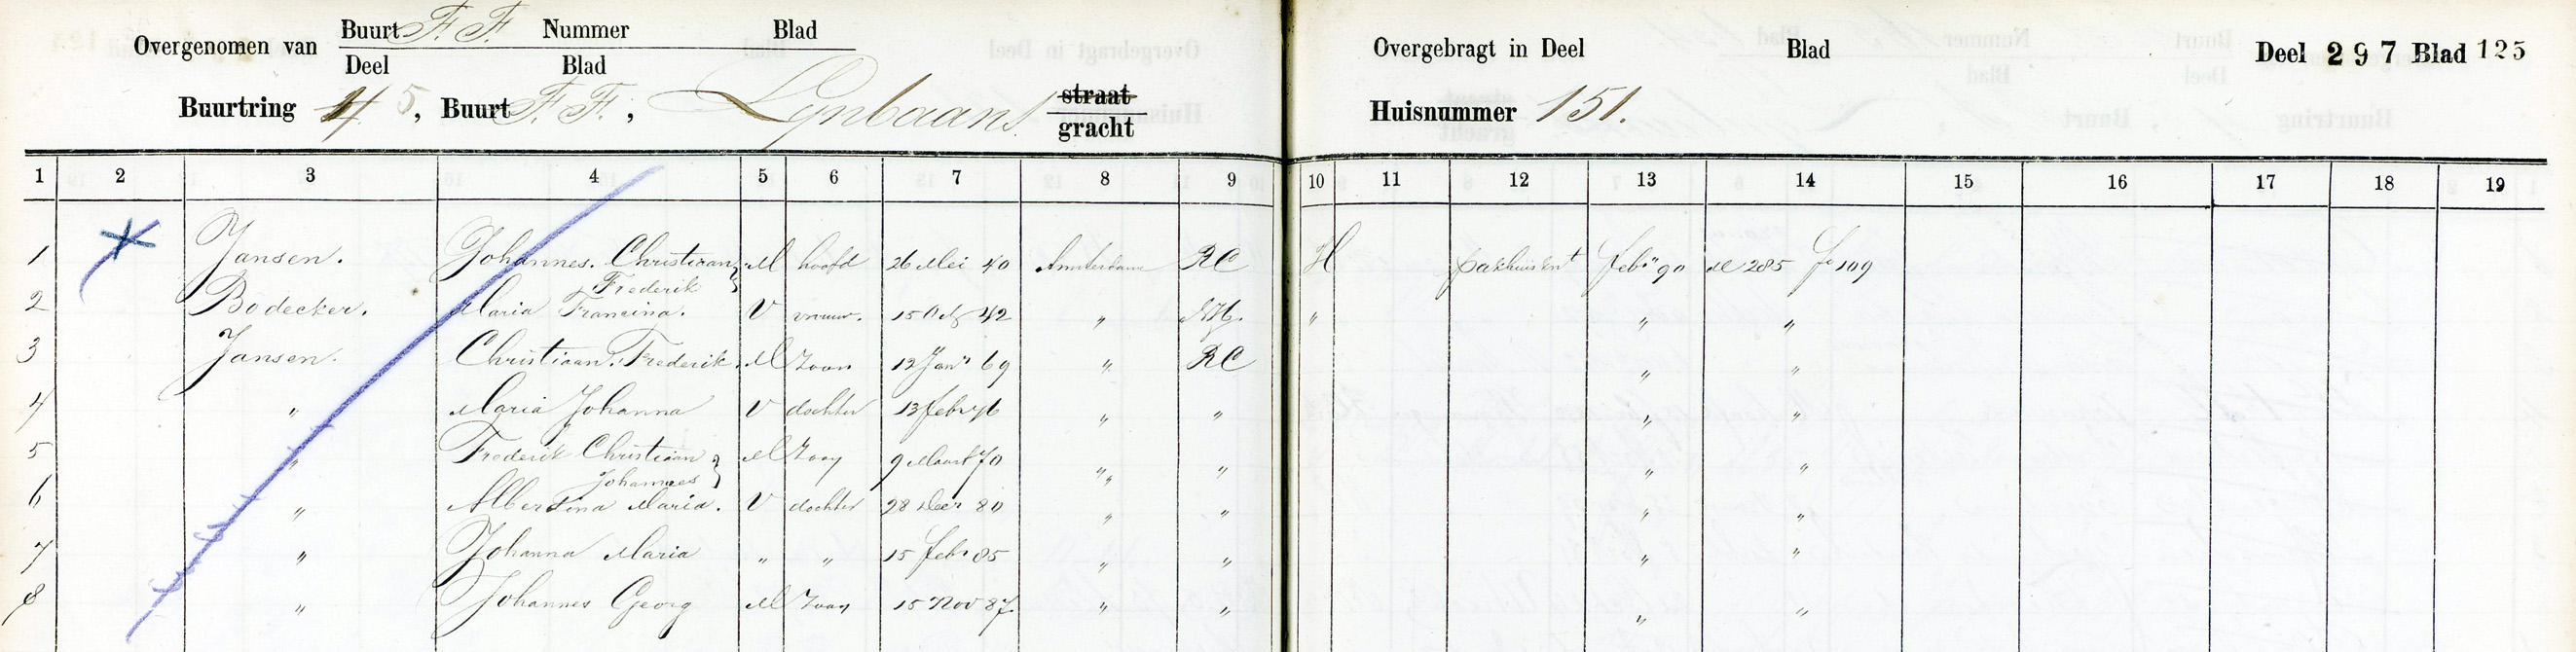 Overgenomen van Buurt F. F. Nummer Blad
Deel Blad
Buurtring 4 5, Buurt F. F.; Lynbaans straat
gracht
Overgebragt in Deel Blad
Deel 297 Blad 125
Huisnummer 151.
1 2 3 4 5 6 7 8 9 10 11 12 13 14 15 16 17 18 19
1 Jansen. Johannes. Christiaan M hoofd 26 Mei 40 Amsterdam RC H pakhuiskn^t feb^ri 90 de 285 fo 109
Frederik
2 Bodecker. Maria Francina. V vrouw. 15 42 NH. " " "
3 Jansen. Christiaan. Frederik. M zoon 12 Jan^ri 69 " RC " "
4 " Maria Johanna V dochter 13 febr 76 " " " "
5 " Frederik Christiaan M zoon 9 Maart 70 " " " "
Johannes
6 " Albertina Maria. V dochter 28 Decr 80 " " " "
7 " Johanna Maria " " 15 febr 85 " " " "
8 " Johannes Georg M zoon 15 Nov 87 " " " "